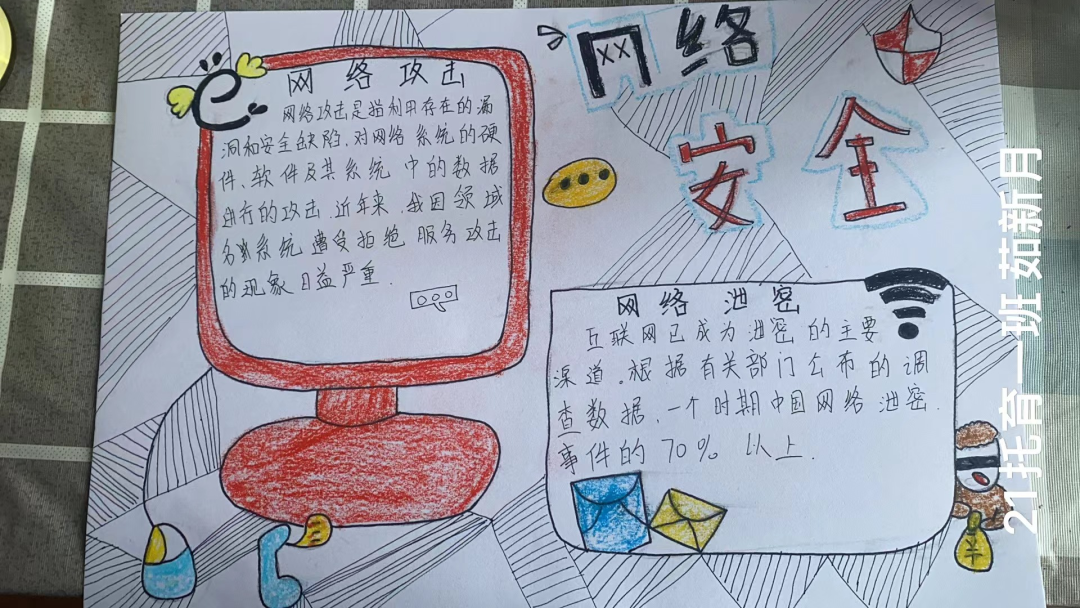 网络
安全
网络攻击
网络攻击是指利用存在的漏
洞和安全缺陷,对网络系统的硬
件、软件及其系统中的数据
进行的攻击.近年来.我国领域
系统遭受拒绝服务攻击
的现象日益严重.
网络泄密
互联网已成为泄密的主要
渠道。根据有关部门公布的调
查数据,一个时期中国网络泄密.
事件的70% 以上.
¥
21托育一班 茹新月